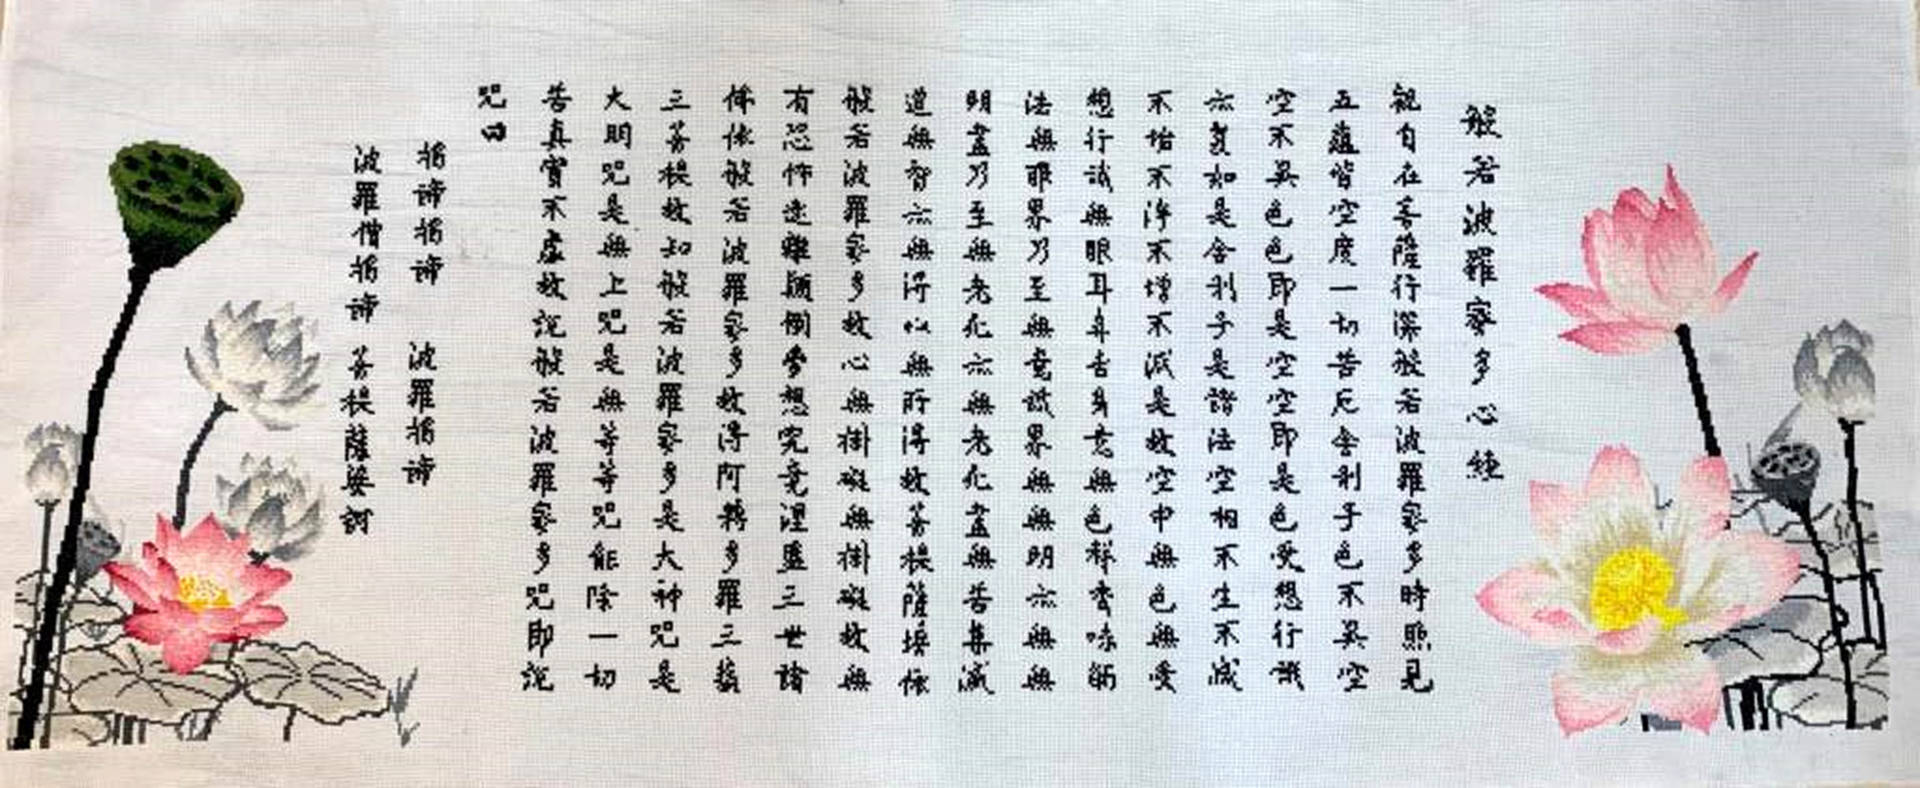 般若波羅蜜多心經
觀自在菩薩行深般若波羅蜜多時照見
五蘊皆空度一切苦厄舍利子色不異空
空不異色色即是空空即是色受想行識
亦復如是舍利子是諸法空相不生不滅
不垢不淨不增不減是故空中無色無受
想行識無眼耳鼻舌身意無色聲香味觸
法無眼界乃至無意識界無無明亦無無
明盡乃至無老死亦無老死盡無苦集滅
道無智亦無得以無所得故菩提薩埵依
般若波羅蜜多故心無掛礙無掛礙故無
有恐怖遠離顛倒夢想究竟涅槃三世諸
佛依般若波羅蜜多故得阿耨多羅三藐
三菩提故知般若波羅蜜多是大神咒是
大明咒是無上咒是無等等咒能除一切
苦真實不虛故說般若波羅蜜多咒即說
咒曰
揭諦揭諦 波羅揭諦
波羅僧揭諦 菩提薩婆訶